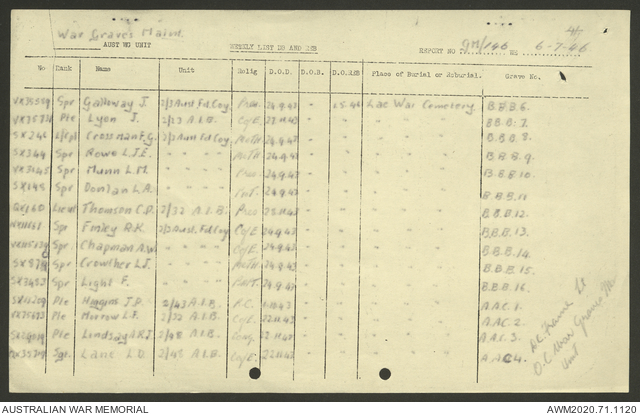 War Graves Maint
AUST WG UNIT WEEKLY LIST DB AND REB REPORT NO GM/146 WE 6-7-46
No Rank Name Unit Relig D.O.D. D.O.B. D.O.REB Place of Burial or Reburial. Grave No.
Spr Galloway J. 2/3 Aust Fd Coy Pres 24.9.43 " 1.5.46 Lae War Cemetery B.B.B.6.
Pte Lyon J. 2/23 A.I.B. C of E 23.11.43 " " " " " B.B.B.7.
SX246 L/Cpl Crossman F.G. 2/3 Aust Fd Coy Meth 24.9.43 " " " " " B.B.B.8.
SX344 Spr Rowe L.J.E. " " " " Meth 24.9.43 " " " " " B.B.B.9.
Spr Munn L.M. " " " " Pres 24.9.43 " " " " " B.B.B.10.
SX148 Spr Donlan L.A. " " " " 24.9.43 " " " " " B.B.B.11
Lieut Thomson C.D. 2/32 A.I.B. Pres 23.11.43 " " " " " B.B.B.12.
Spr Finley A.K. 2/3 Aust Fd Coy C of E 24.9.43 " " " " " B.B.B.13.
Spr Chapman A.W. " " " " C of E 24.9.43 " " " " " B.B.B.14.
Spr Crowther L.J. " " " " Meth 24.9.43 " " " " " B.B.B.15.
SX3453 Spr Light F. " " " " 24.9.43 " " " " " B.B.B.16.
Pte Higgins J.P. 2/43 A.I.B. R.C. " " " " " A.A.C.1.
Pte Morrow L.F. 2/32 A.I.B. C of E 22.11.43 " " " " " A.A.C.2.
Pte Lindsay A.R.J. 2/48 A.I.B. Cong. 22.11.43 " " " " " A.A.C.3.
Sgt. Lane L.D. 2/48 A.I.B. C of E 22.11.43 " " " " " A.A.C.4.
Lt
O.C. War Graves Mt.
Unit
AUSTRALIAN WAR MEMORIAL AWM2020.71.1120